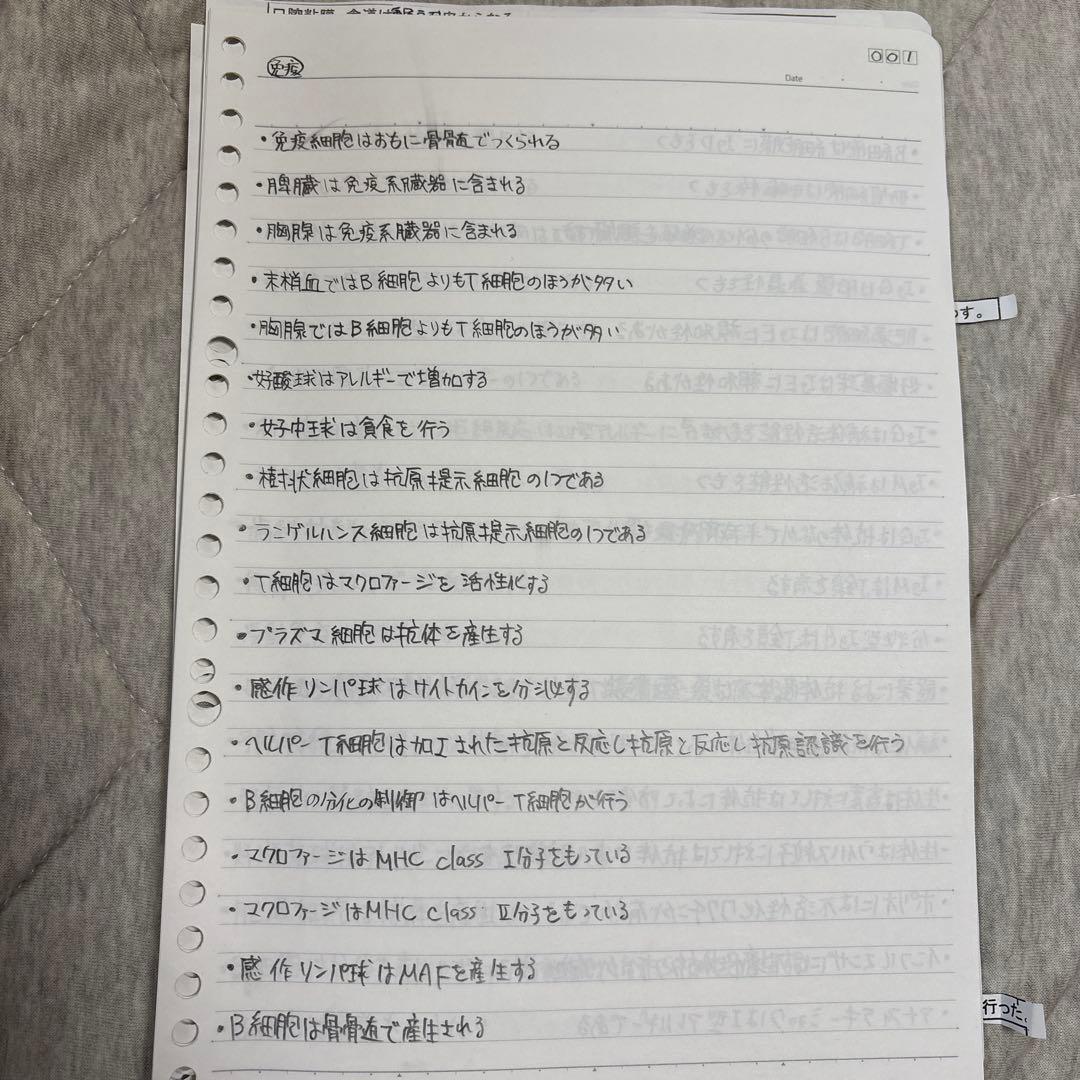 免疫
001
Date
・免疫細胞はおもに骨髄でつくられる
・脾臓は免疫系臓器に含まれる
・胸腺は免疫系臓器に含まれる
・末梢血ではB細胞よりもT細胞のほうが多い
・胸腺ではB細胞よりもT細胞のほうが多い
・好酸球はアレルギーで増加する
・好中球は貪食を行う
・樹状細胞は抗原提示細胞の1つである
・ランゲルハンス細胞は抗原提示細胞の1つである
・T細胞はマクロファージを活性化する
・プラズマ細胞は抗体を産生する
・感作リンパ球はサイトカインを分泌する
・ヘルパーT細胞は加工された抗原と反応し抗原と反応し抗原認識を行う
・B細胞の分化の制御はヘルパーT細胞が行う
・マクロファージはMHC class I分子をもっている
・マクロファージはMHC class II分子をもっている
・感作リンパ球はMAFを産生する
・B細胞は骨髄で産生される
す。
行った。